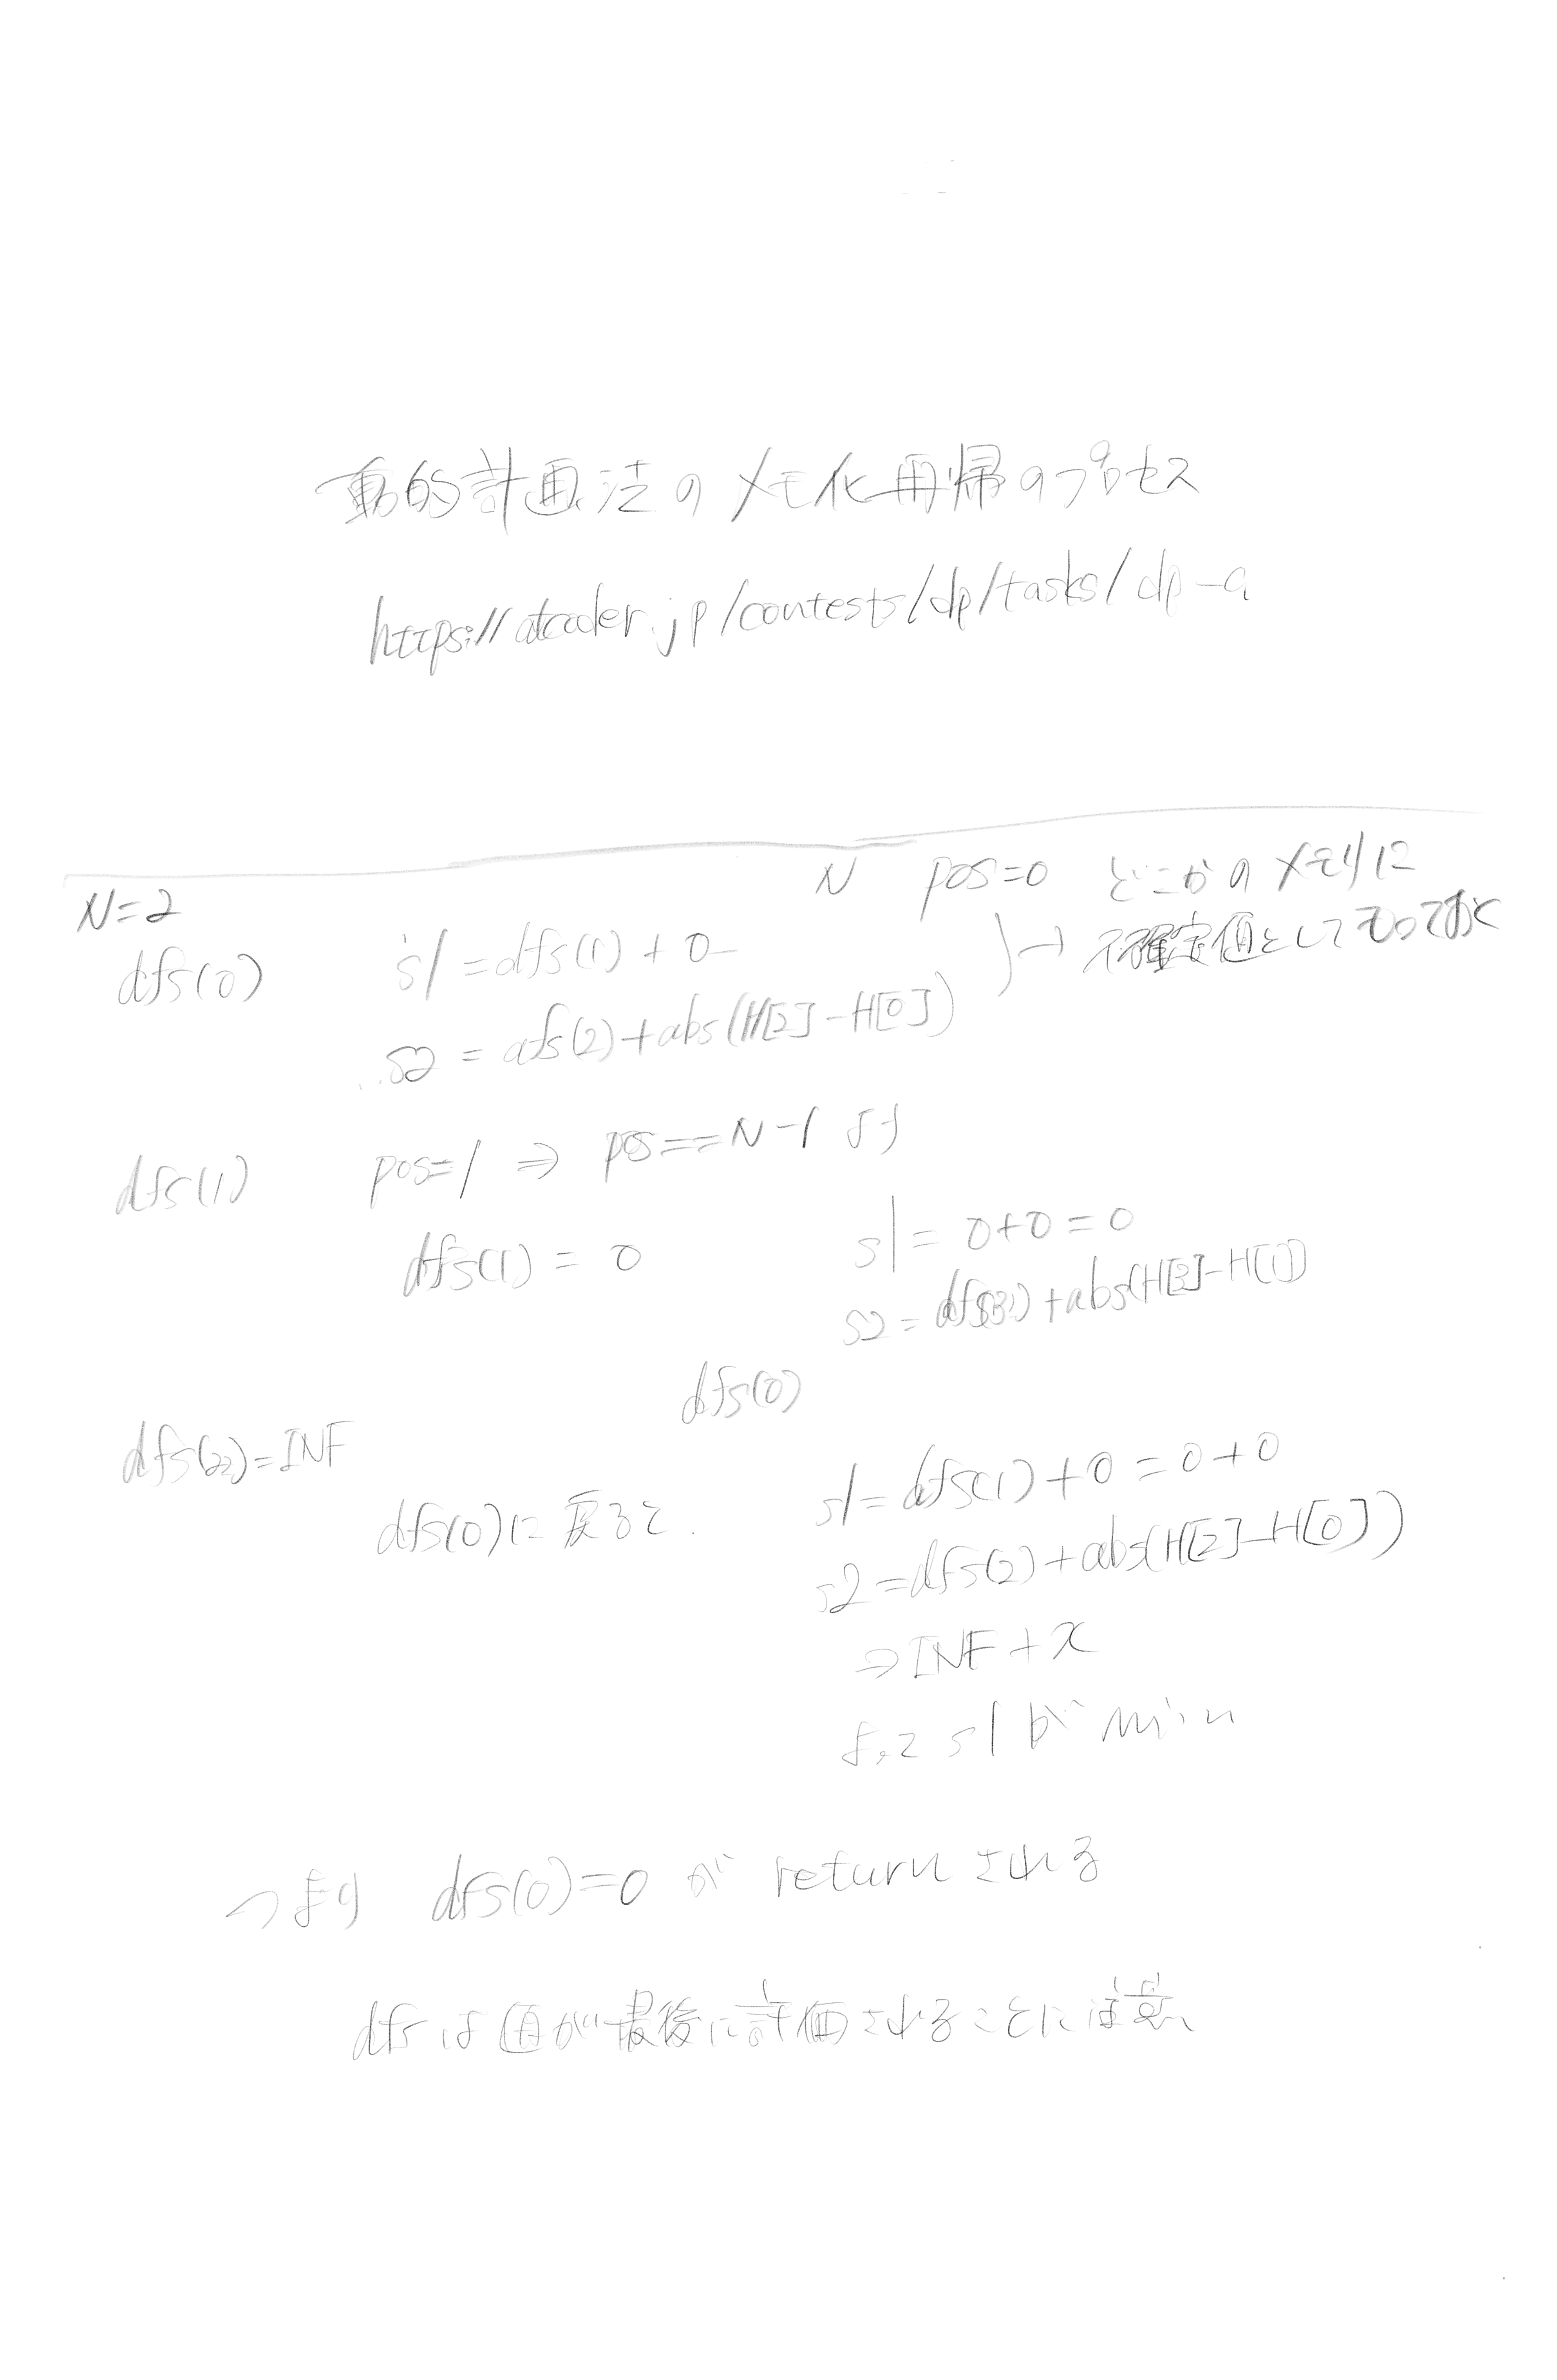 動的計画法のメモ化再帰のプロセス
https://atcoder.jp/contests/dp/tasks/dp-a
N pos=0 どこかのメモリに
N=2 不確定値としてもっておく
dfs(0) s1=dfs(1)+0
s2=dfs(2)+abs(H[2]-H[0])
dfs(1) pos=1 ⇒ pos==N-1 より
dfs(1)=0 s1=0+0=0
s2=dfs(3)+abs(H[3]-H[1])
dfs(0)
dfs(2)=INF
dfs(0)に戻ると. s1=dfs(1)+0=0+0
s2=dfs(2)+abs(H[2]-H[0])
⇒INF+x
よって s1が min
つまり dfs(0)=0 が returnされる
dfsは値が最後に評価されることに注意